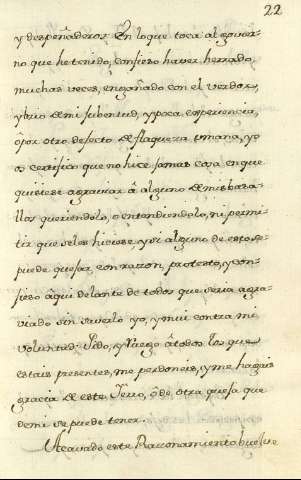 22
y despeñaderos. En lo que toca al gover-
no que he tenido, confieso haver herrado
muchas veces, engañado con el verdor,
y brio de mi jubentud, y poca experiencia,
ò por otro defecto de flaqueza umana, y o
s certifico que no hice jamas cosa en que
quisiese agraviar â alguno de mis basa-
llos queriendolo, o entendiendolo, ni permi-
tir que se les hiciese y si alguno de esto se
puede quejar, con razon, protesto, y con-
fieso aqui delante de todos que seria agra-
viado sin saverlo yo, y mui contra mi
voluntad: Pido, y Ruego â todos los que
estais presentes, me perdoneis, y me hagais
gracia de este Yerro, ô de otra queja que
de mi se puede tener.
Acavado este Razonamiento buelve